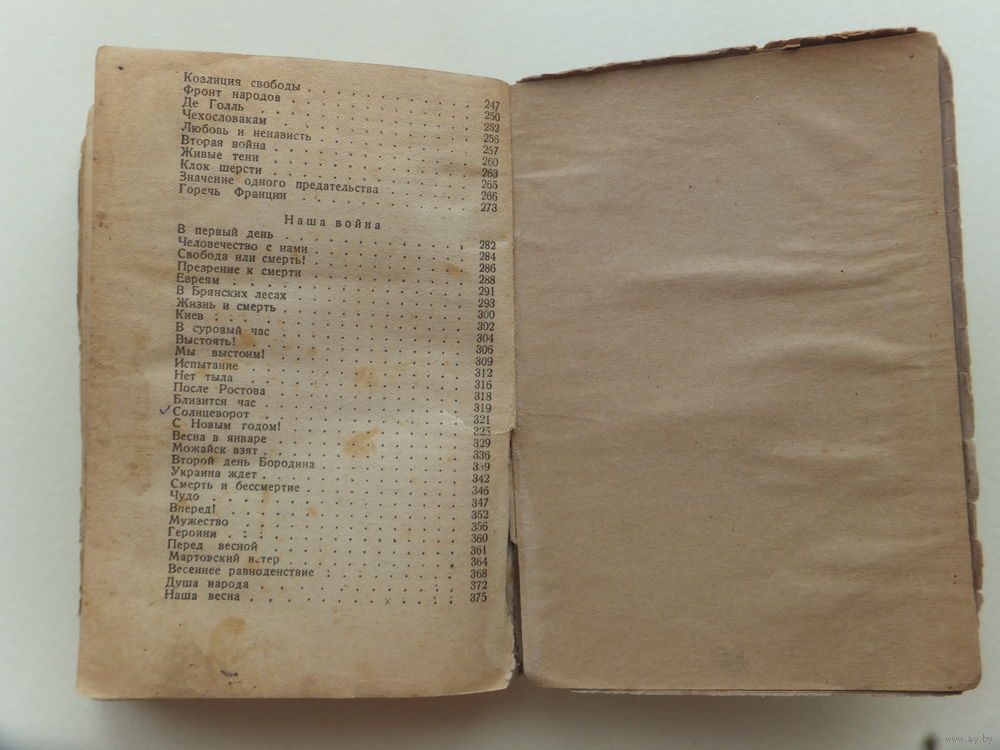 Коалиция свободы . . . . . . . . . 247
Фронт народов . . . . . . . . . 250
Де Голль . . . . . . . . . 252
Чехословакам . . . . . . . . . 256
Любовь и ненависть . . . . . . . . . 257
Вторая война . . . . . . . . . 260
Живые тени . . . . . . . . . 263
Клок шерсти . . . . . . . . . 265
Значение одного предательства . . . . . . 266
Горечь Франции . . . . . . . . . 273
Наша война
В первый день . . . . . . . . . 282
Человечество с нами . . . . . . . . . 284
Свобода или смерть! . . . . . . . . . 286
Презрение к смерти . . . . . . . . . 288
Евреям . . . . . . . . . 291
В Брянских лесах . . . . . . . . . 293
Жизнь и смерть . . . . . . . . . 300
Киев . . . . . . . . . 302
В суровый час . . . . . . . . . 304
Выстоять! . . . . . . . . . 306
Мы выстоим! . . . . . . . . . 309
Испытание . . . . . . . . . 312
Нет тыла . . . . . . . . . 316
После Ростова . . . . . . . . . 318
Близится час . . . . . . . . . 319
✓ Солнцеворот . . . . . . . . . 321
С Новым годом! . . . . . . . . . 325
Весна в январе . . . . . . . . . 329
Можайск взят . . . . . . . . . 336
Второй день Бородина . . . . . . . . . 339
Украина ждет . . . . . . . . . 342
Смерть и бессмертие . . . . . . . . . 346
Чудо . . . . . . . . . 347
Вперед! . . . . . . . . . 352
Мужество . . . . . . . . . 356
Героини . . . . . . . . . 360
Перед весной . . . . . . . . . 361
Мартовский ветер . . . . . . . . . 364
Весеннее равноденствие . . . . . . . . . 368
Душа народа . . . . . . . . . 372
Наша весна . . . . . . . . . 375
www.ay.by